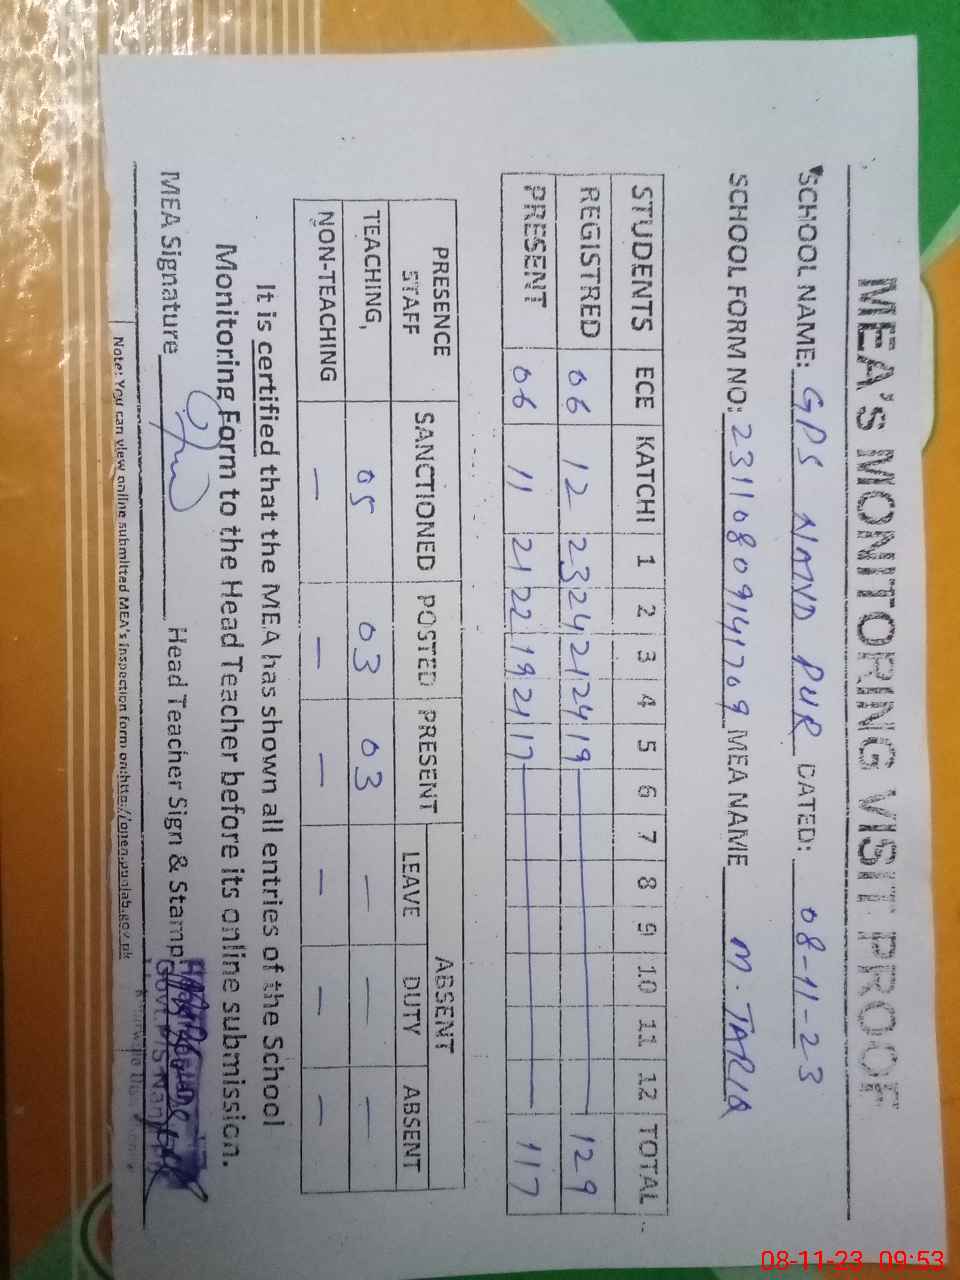 MEA's MONITORING VISIT PROOF
SCHOOL NAME: GPS NAND PUR DATED: 08-11-23
SCHOOL FORM NO: 23110809141709 MEA NAME M. TARIQ
STUDENTS ECE KATCHI 1 2 3 4 5 6 7 8 9 10 11 12 TOTAL
REGISTRED 06 12 23 24 21 24 19 129
PRESENT 06 11 21 22 19 21 17 117
PRESENCE STAFF SANCTIONED POSTED PRESENT ABSENT
LEAVE DUTY ABSENT
TEACHING, 05 03 03 — — —
NON-TEACHING — — — — — —
It is certified that the MEA has shown all entries of the School
Monitoring Form to the Head Teacher before its online submission.
MEA Signature Head Teacher Sign & Stamp:
Govt. P/S Nand
Note: You can view online submitted MEA's inspection form on:http://open.punjab.gov.pk
08-11-23 09:53